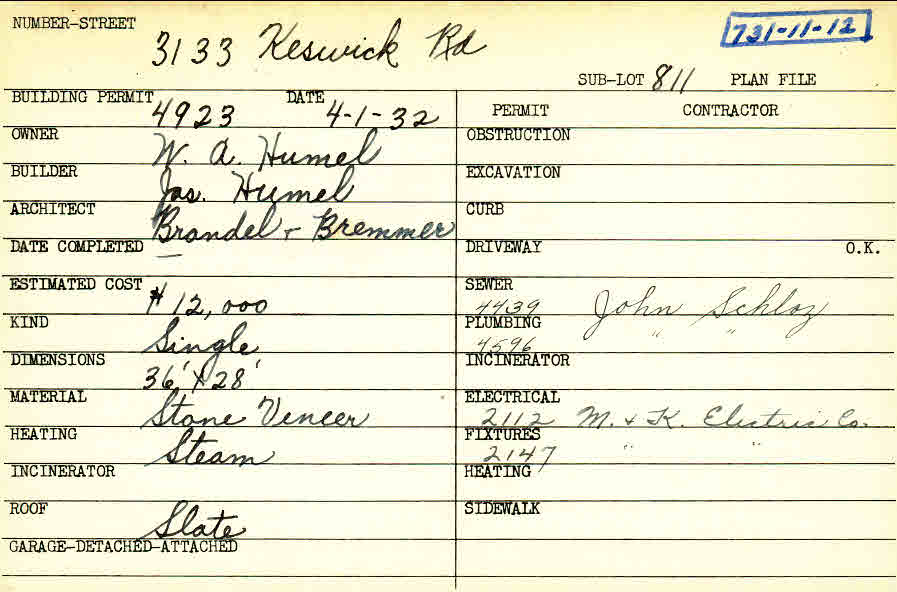 NUMBER-STREET
3133 Keswick Rd
731-11-12
SUB-LOT 811 PLAN FILE
BUILDING PERMIT 4923 DATE 4-1-32
PERMIT CONTRACTOR
OWNER W. A. Humel
BUILDER Jas. Humel
ARCHITECT Brandel + Bremmer
DATE COMPLETED —
ESTIMATED COST $12,000
KIND Single
DIMENSIONS 36' X 28'
MATERIAL Stone Veneer
HEATING Steam
INCINERATOR
ROOF Slate
GARAGE-DETACHED-ATTACHED
OBSTRUCTION
EXCAVATION
CURB
DRIVEWAY O.K.
SEWER
4439 John Schloz
PLUMBING
4596 " "
INCINERATOR
ELECTRICAL
2112 M. + K. Electric Co.
FIXTURES
2147 " "
HEATING
SIDEWALK